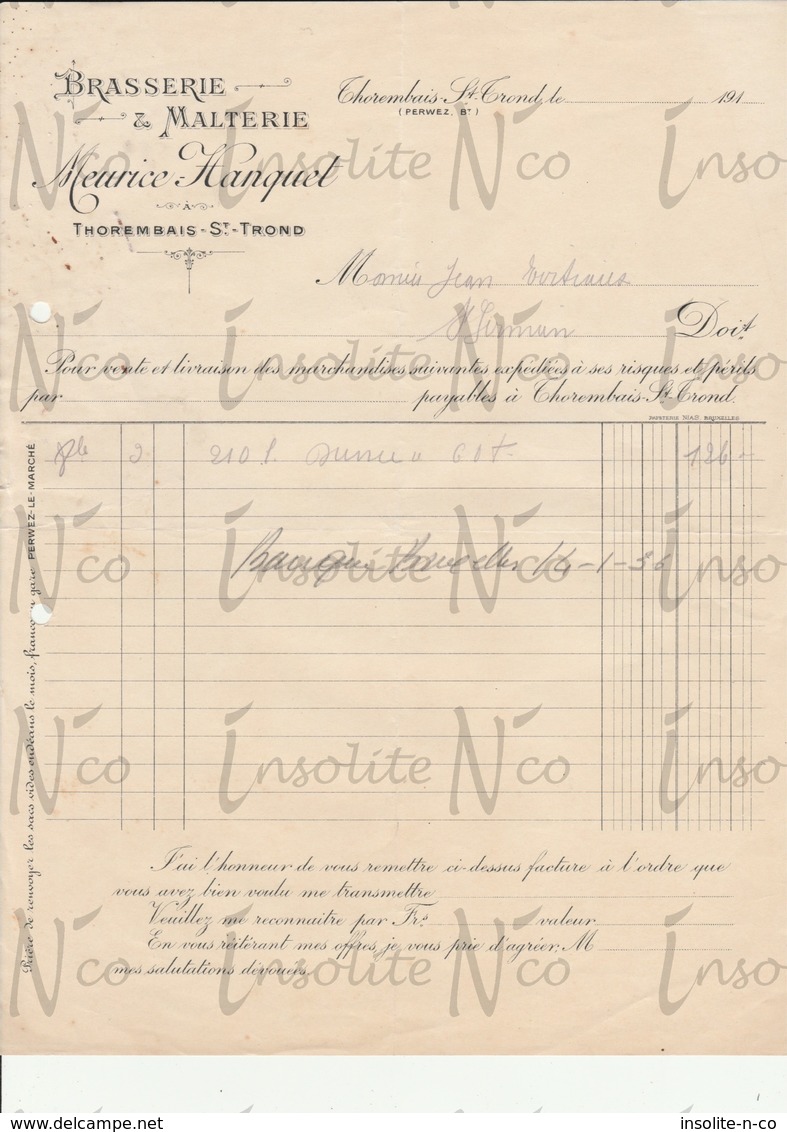 BRASSERIE
& MALTERIE
Meurice-Hanquet
À
THOREMBAIS-ST-TROND
Thorembais-St-Trond, le 191
(PERWEZ, BT)
M Jean
St Germain Doit
Pour vente et livraison des marchandises suivantes expédiées à ses risques et périls
par payables à Thorembais-St-Trond.
PAPETERIE NIAS. BRUXELLES
210 l. 126 -
Banque Bruxelles 14-1-36
Prière de renvoyer les sacs vides endéans le mois, franco en gare PERWEZ-LE-MARCHÉ
J'ai l'honneur de vous remettre ci-dessus facture à l'ordre que
vous avez bien voulu me transmettre
Veuillez me reconnaître par Frs valeur
En vous réitérant mes offres, je vous prie d'agréer, M
mes salutations dévouées.
Insolite N'co
insolite-n-co